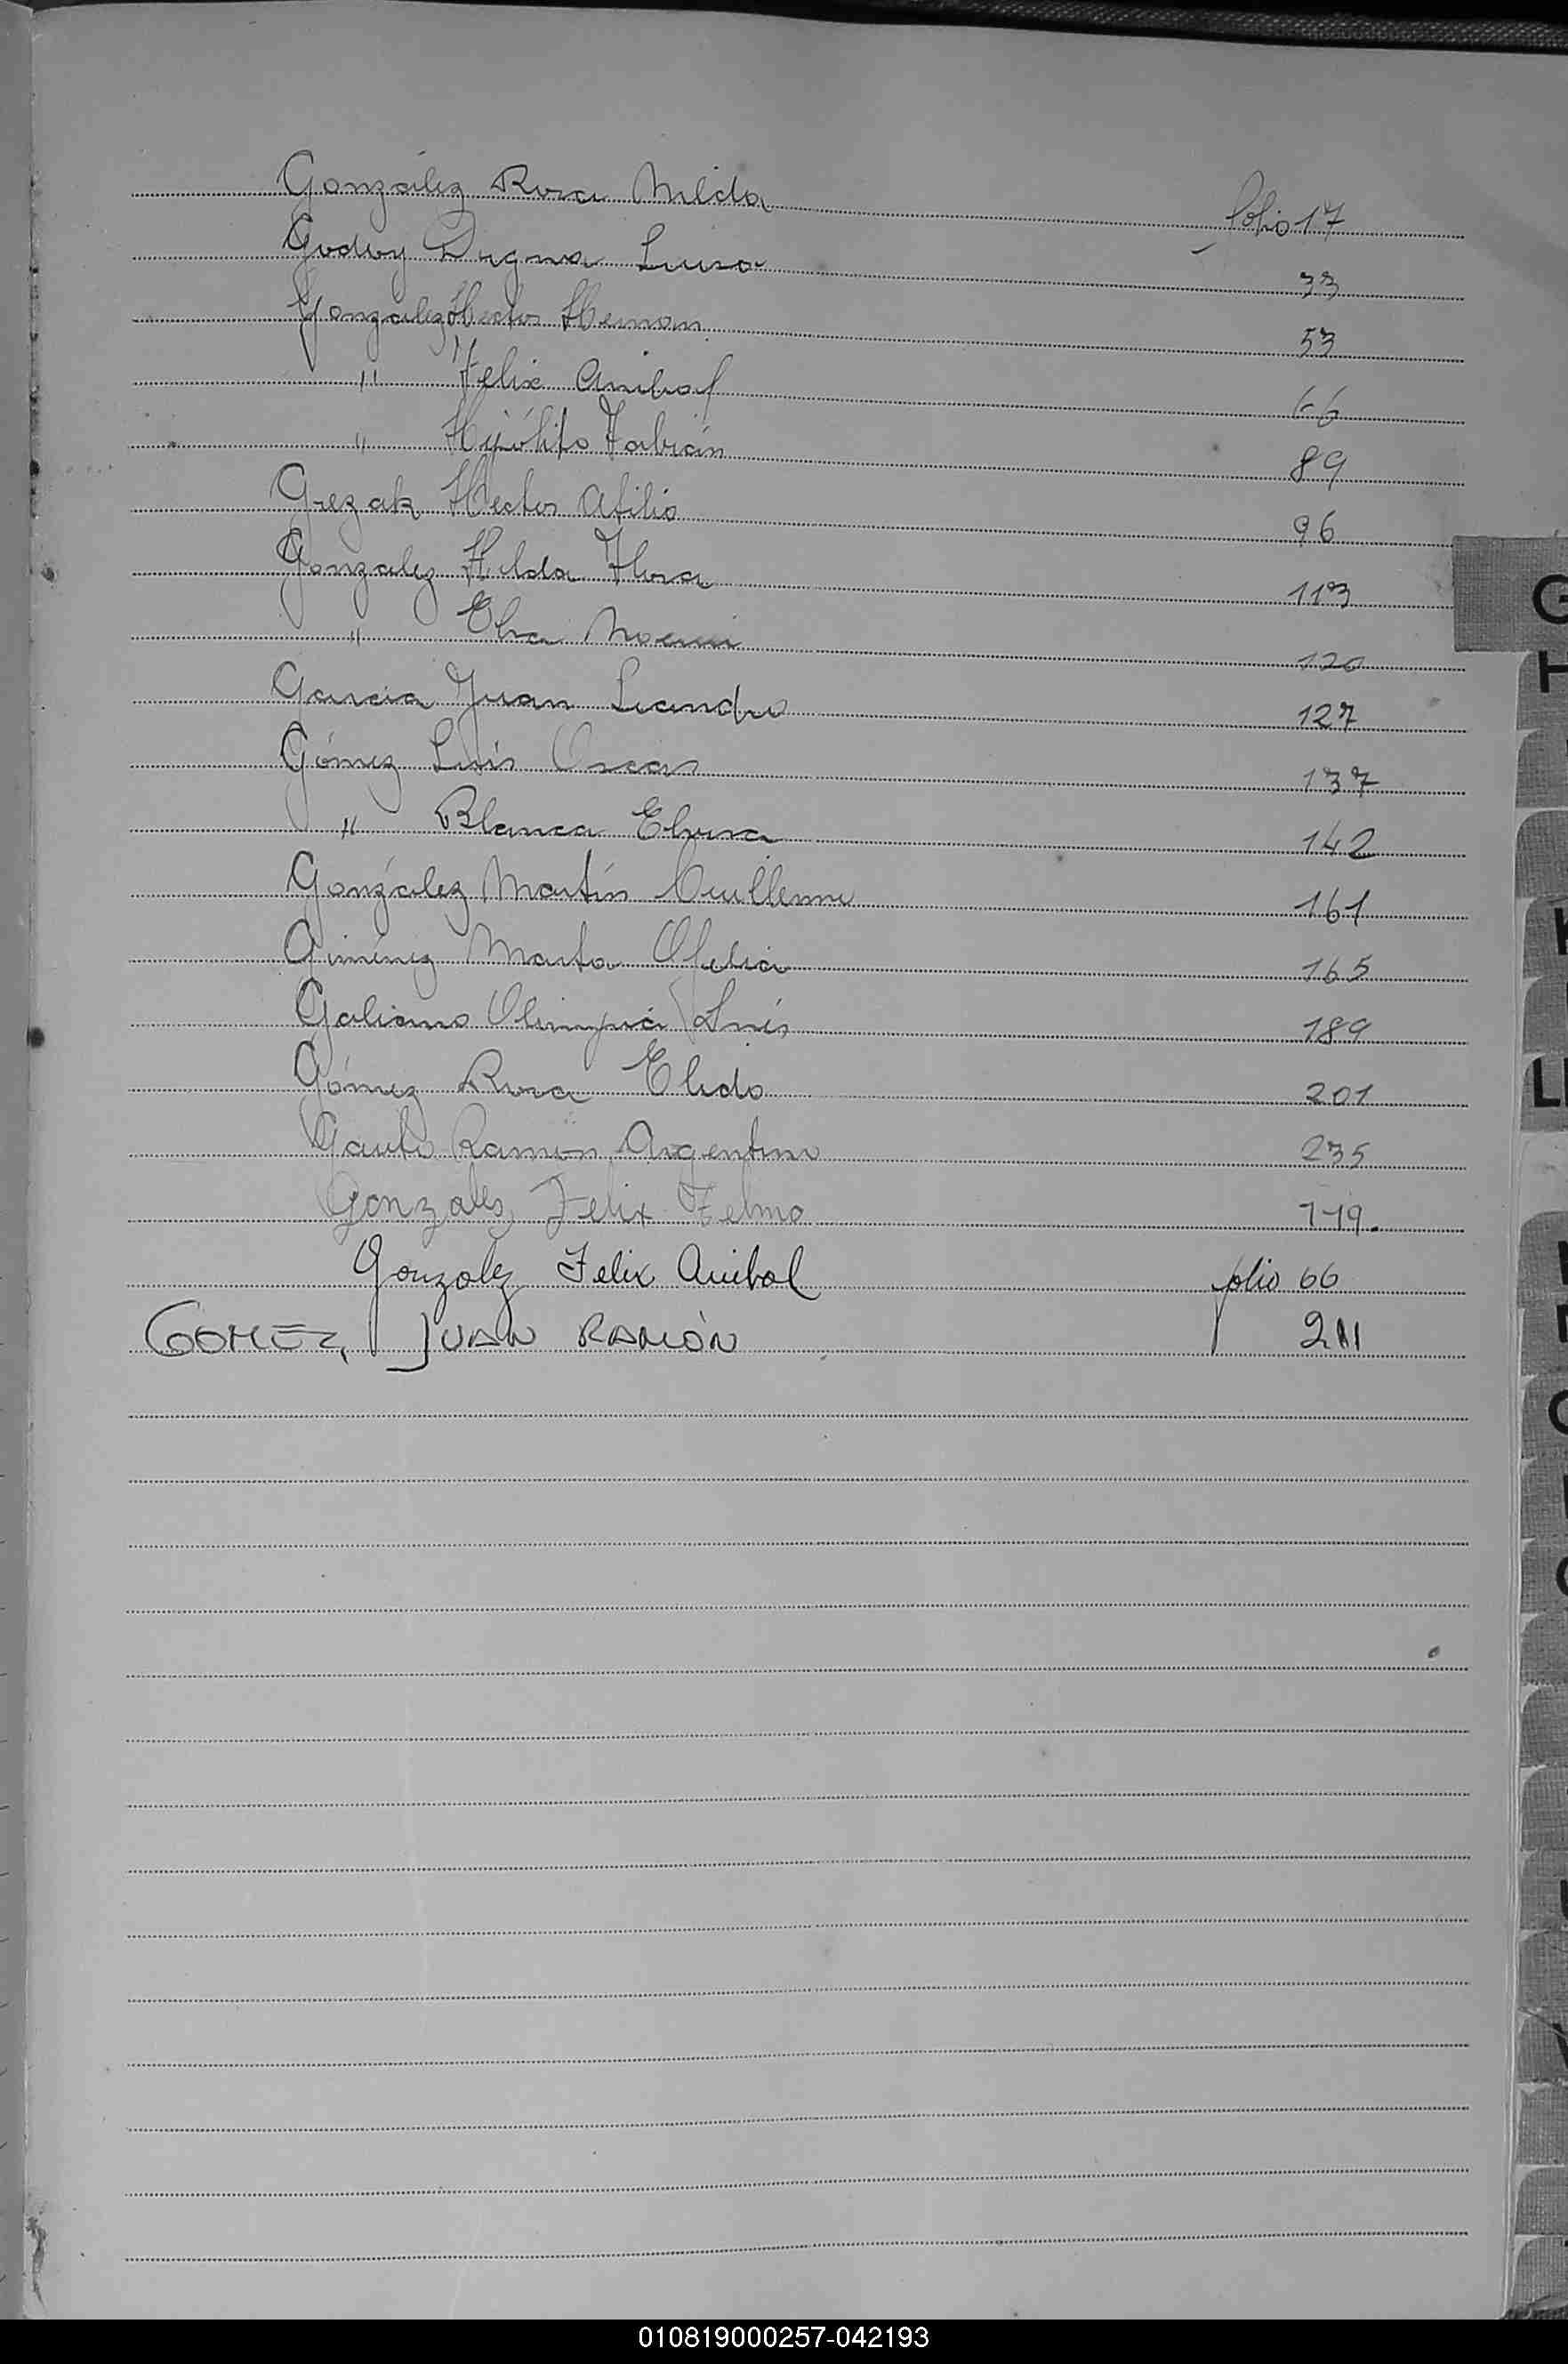 González Rosa Nélida folio 17
Godoy Dugma Luisa 33
Gonzalez Hector Hernan 53
" Felix Anibal 66
" Hipólito Fabián 89
Grezak Hector Atilio 96
Gonzalez Hilda Flora 113
" Elva Noemi 120
Garcia Juan Leandro 127
Gómez Luis Oscar 137
" Blanca Elvira 142
González Martín Guillermo 161
Giménez Marta Ofelia 165
Galiano Olimpia Inés 189
Gómez Rosa Elida 201
Gauto Ramón Argentino 235
Gonzales, Felix Telmo 119.
Gonzalez Felix Anibal folio 66
GOMEZ, JUAN RAMÓN 211
G
H
K
LL
010819000257-042193